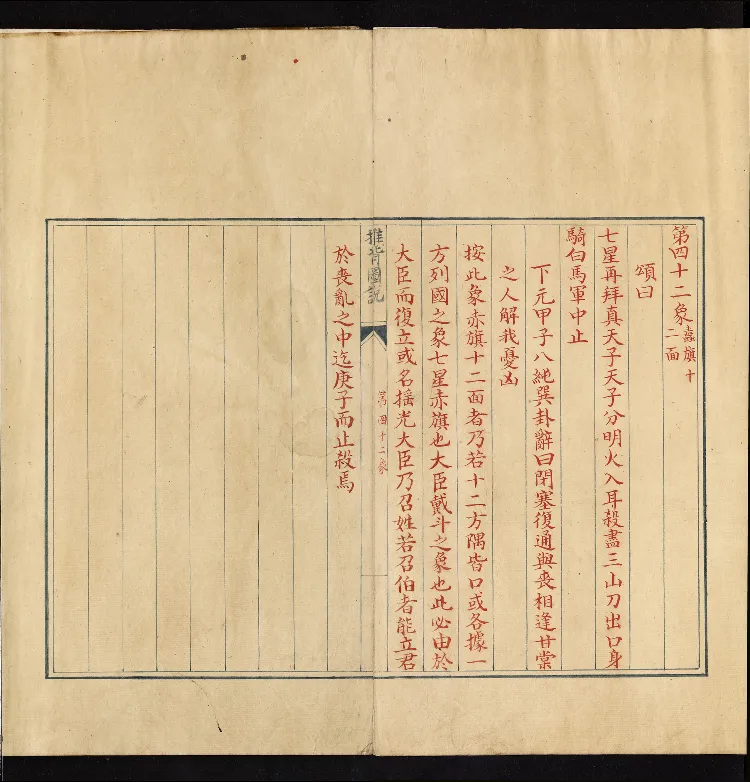 第四十二象 纛旗十二面
頌曰
七星再拜真天子天子分明火入耳殺盡三山刀出口身
騎白馬軍中止
下元甲子八純巽卦辭曰閉塞復通與喪相逢甘棠
之人解我憂凶
按此象赤旗十二面者乃若十二方隅皆口或各據一
方列國之象七星赤旗也大臣戴斗之象也此必由於
大臣而復立或名搖光大臣乃召姓若召伯者能立君
推背圖說
第四十二象
於喪亂之中迄庚子而止殺焉